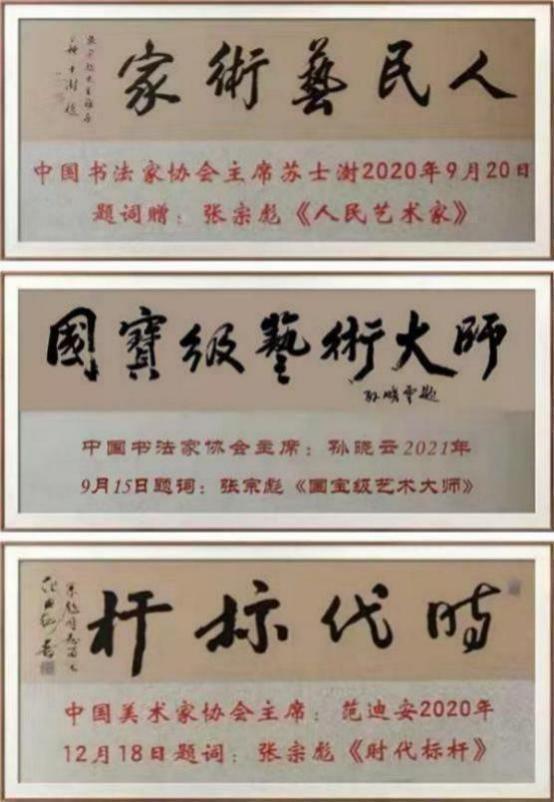 人民藝術家
中国书法家协会主席苏士澍2020年9月20日
题词赠：张宗彪《人民艺术家》
國寶级藝術大師
孙晓云题
中国书法家协会主席：孙晓云2021年
9月15日题词：张宗彪《国宝级艺术大师》
時代标杆
中国美术家协会主席：范迪安2020年
12月18日题词：张宗彪《时代标杆》